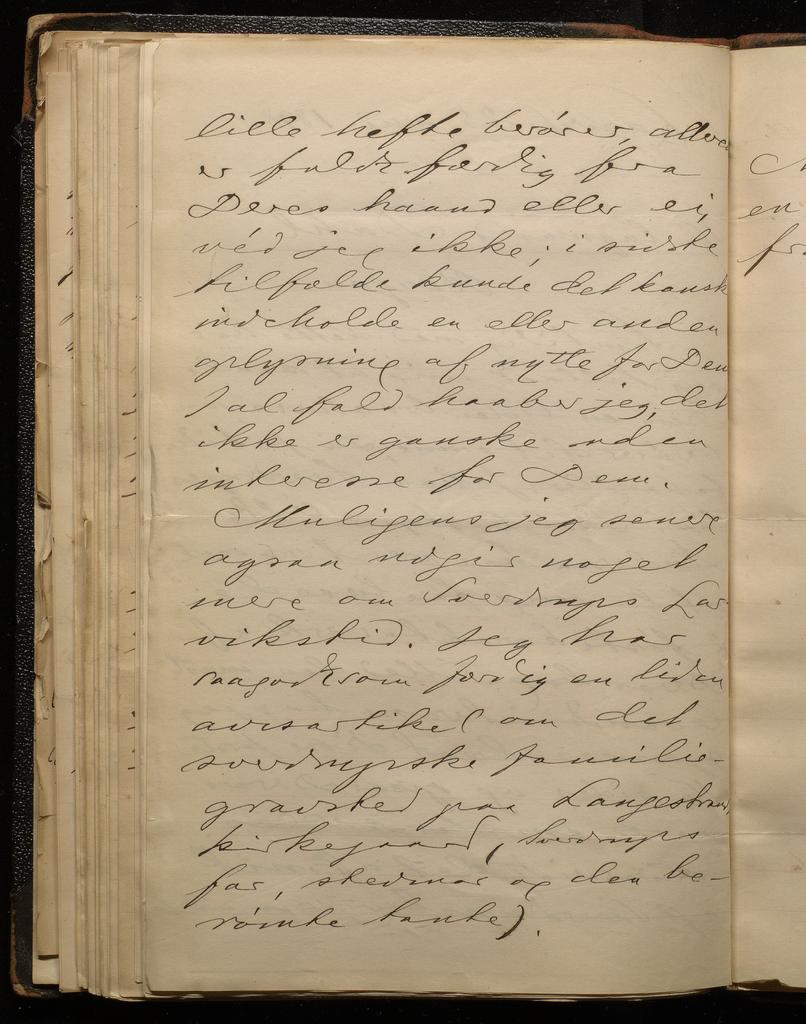 lille hefte berører, allerede
er fuldt færdig fra
Deres haand eller ei,
véd jeg ikke; i sidste
tilfælde kunde det kansk
indeholde en eller anden
oplysning af nytte for Dem
I al fald haaber jeg, det
ikke er ganske uden
interesse for Dem.
Muligens jeg senere
ogsaa udgir noget
mere om Sverdrups Lar-
vikstid. Jeg har
saagodtsom færdig en liden
avisartikel om det
sverdrupske familie-
gravsted paa Langestrands
kirkegaard, Sverdrups
far, stedmor og den be-
rømte tante).
en